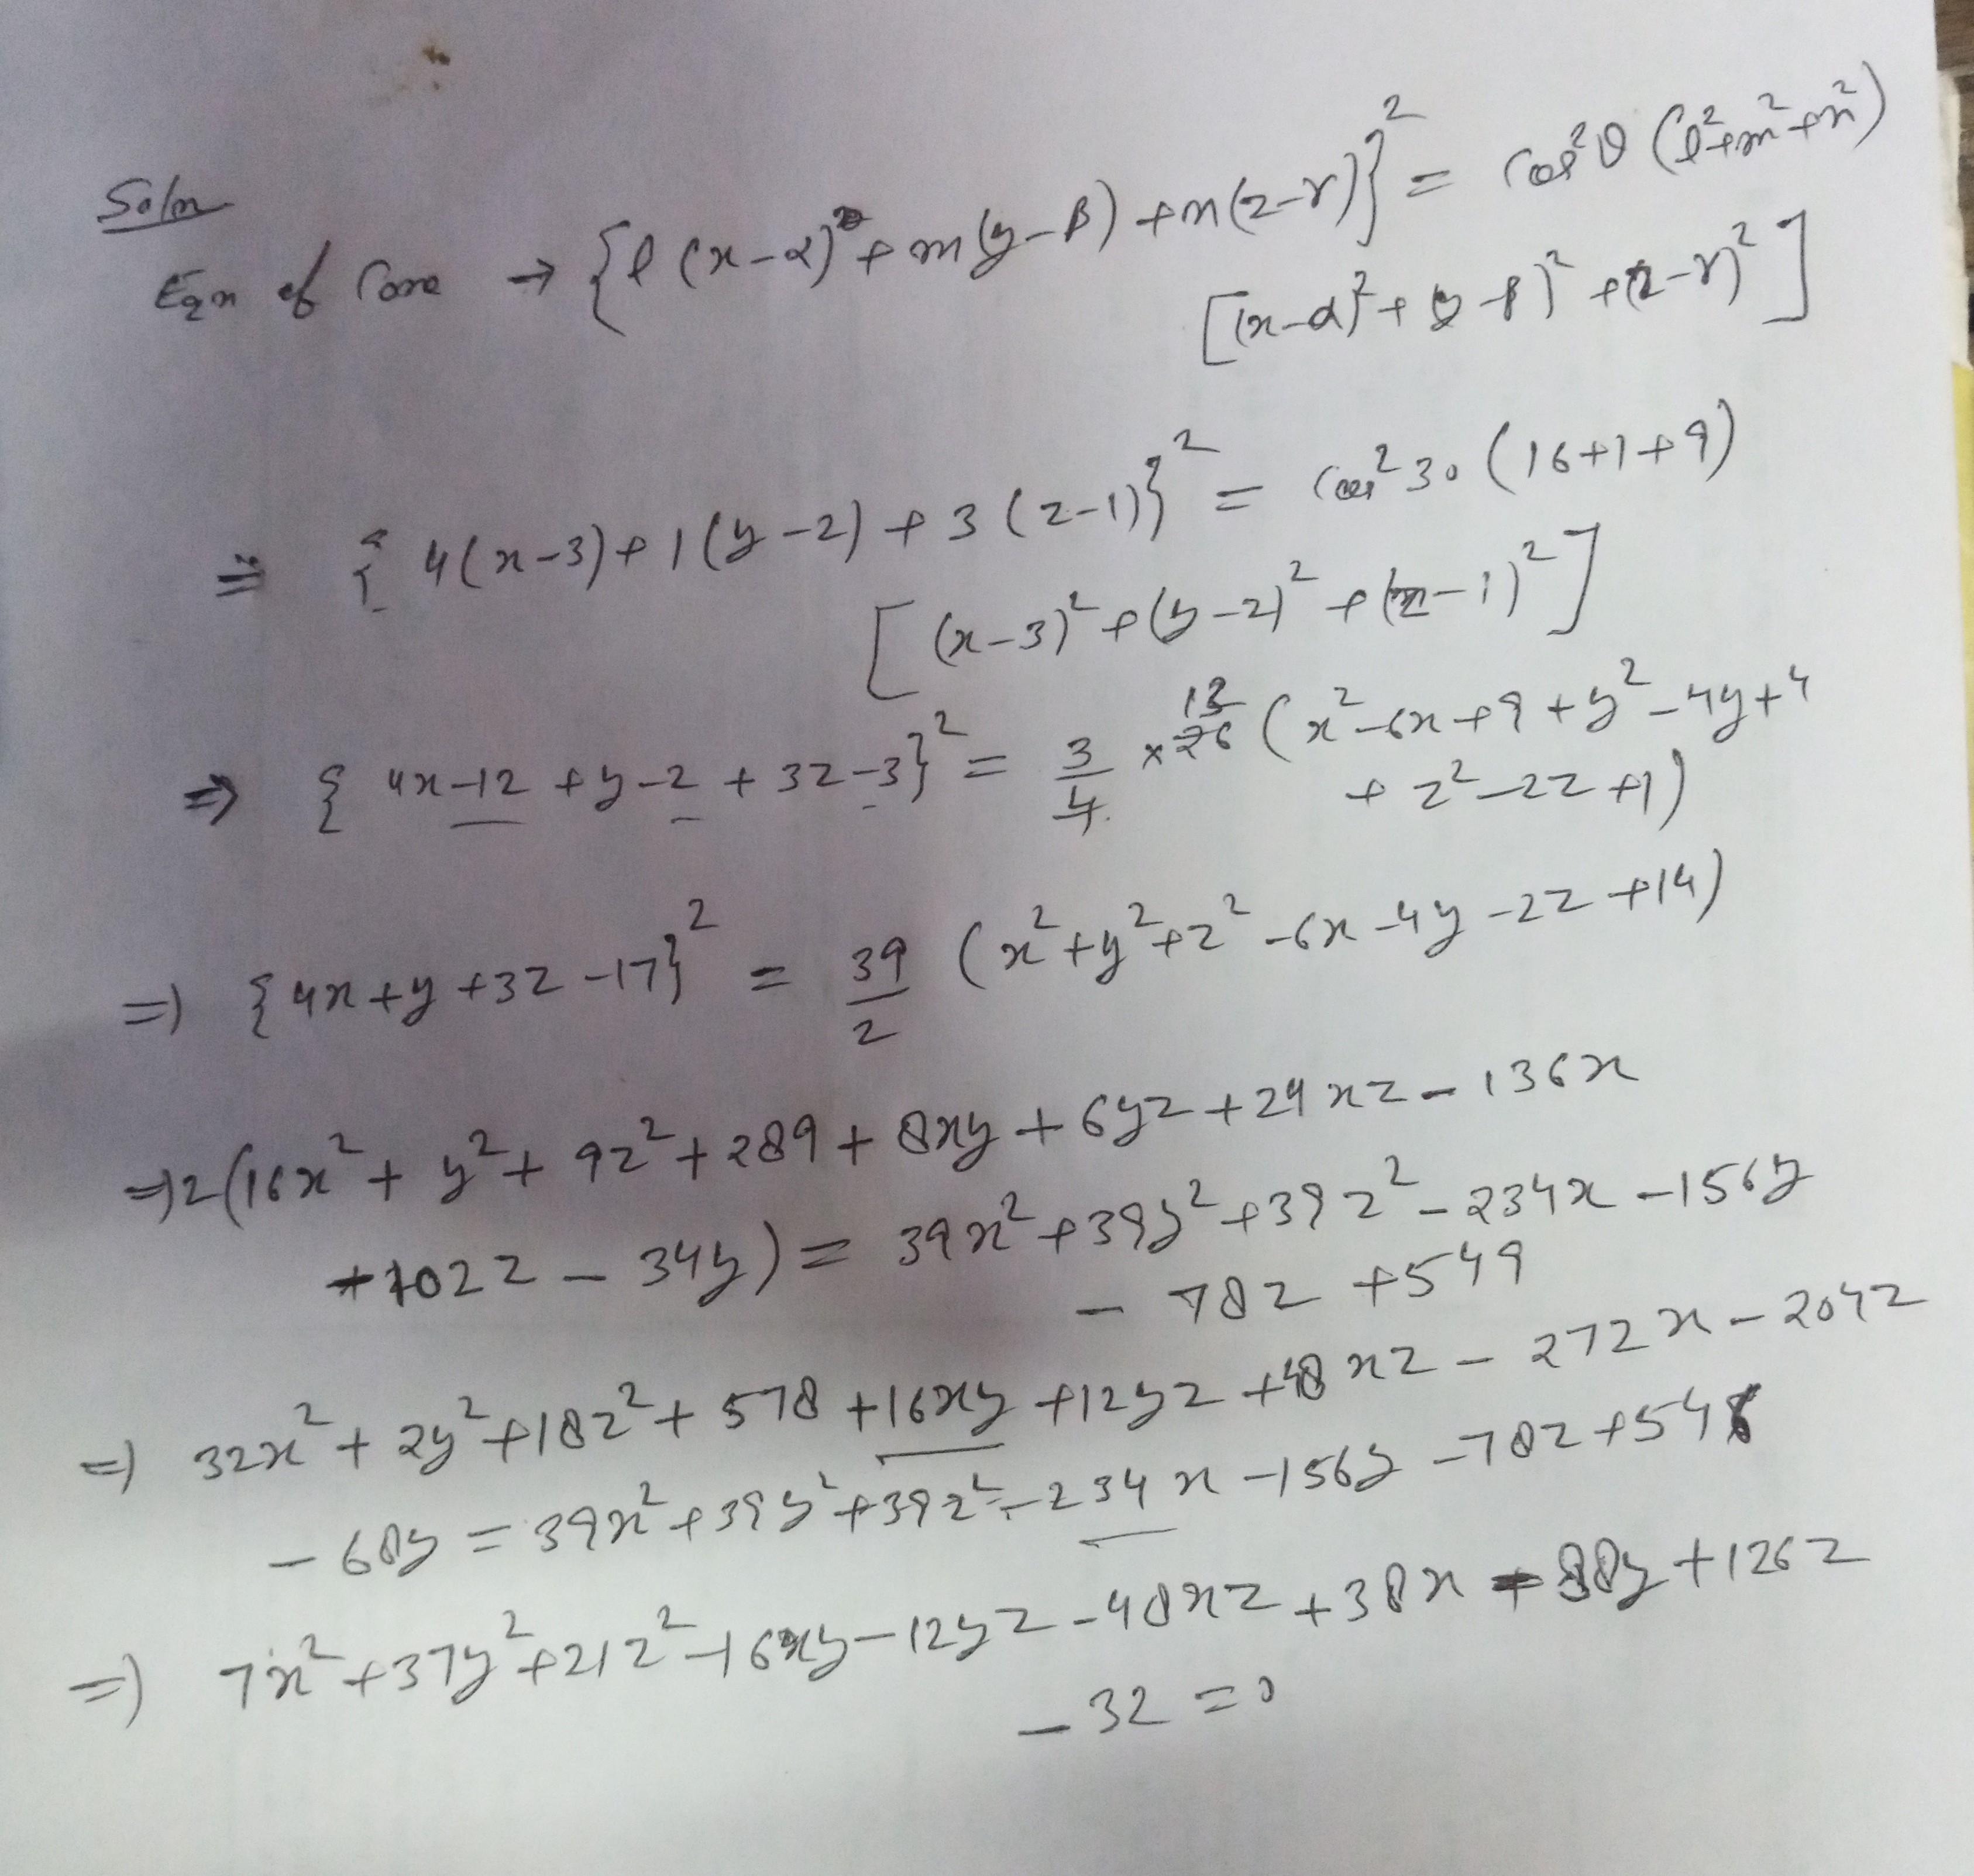 Soln
Eqn of Cone → {l(x-α)+m(y-β)+n(z-γ)}² = Cos²θ (l²+m²+n²)
[(x-α)²+(y-β)²+(z-γ)²]
⇒ {4(x-3)+1(y-2)+3(z-1)}² = Cos²30 (16+1+9)
[(x-3)²+(y-2)²+(z-1)²]
⇒ {4x-12+y-2+3z-3}² = 3/4 × 26 13 (x²-6x+9+y²-4y+4
+z²-2z+1)
⇒ {4x+y+3z-17}² = 39/2 (x²+y²+z²-6x-4y-2z+14)
⇒ 2(16x²+y²+9z²+289+8xy+6yz+24xz-136x
+102z-34y) = 39x²+39y²+39z²-234x-156y
-78z+549
⇒ 32x²+2y²+18z²+578+16xy+12yz+48xz-272x-204z
-68y = 39x²+39y²+39z²-234x-156y-78z+546
⇒ 7x²+37y²+21z²-16xy-12yz-48xz+38x-88y+126z
-32=0